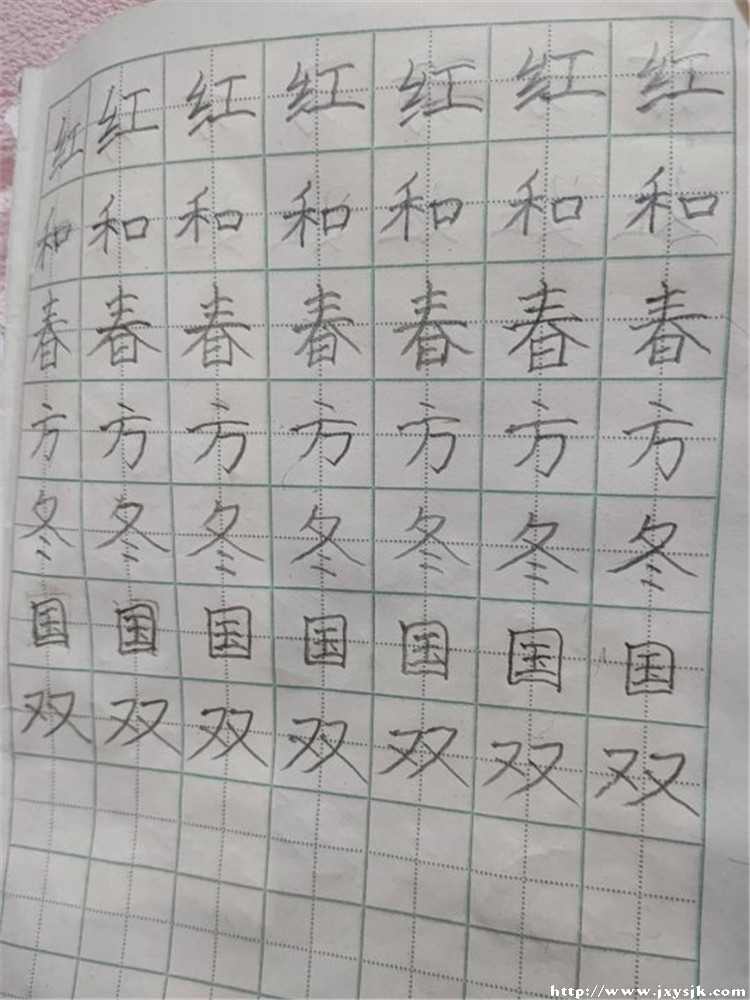 红红红红红红红
和和和和和和和
春春春春春春春
方方方方方方方
冬冬冬冬冬冬冬
国国国国国国国
双双双双双双双
http://www.jxysjk.com